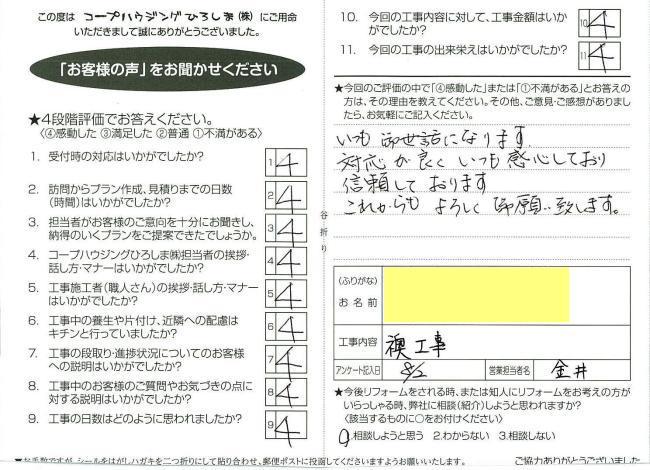 この度は コープハウジングひろしま(株) にご用命
いただきまして誠にありがとうございました。
「お客様の声」をお聞かせください
★4段階評価でお答えください。
〈④感動した ③満足した ②普通 ①不満がある〉
1. 受付時の対応はいかがでしたか? 1 4
2. 訪問からプラン作成、見積りまでの日数
(時間)はいかがでしたか? 2 4
3. 担当者がお客様のご意向を十分にお聞きし、
納得のいくプランをご提案できたでしょうか。 3 4
4. コープハウジングひろしま㈱担当者の挨拶・
話し方・マナーはいかがでしたか? 4 4
5. 工事施工者(職人さん)の挨拶・話し方・マナー
はいかがでしたか? 5 4
6. 工事中の養生や片付け、近隣への配慮は
キチンと行っていましたか? 6 4
7. 工事の段取り・進捗状況についてのお客様
への説明はいかがでしたか? 7 4
8. 工事中のお客様のご質問やお気づきの点に
対する説明はいかがでしたか? 8 4
9. 工事の日数はどのように思われましたか? 9 4
▼お手数ですが、シールをはがしハガキを二つ折りにして貼り合わせ、郵便ポストに投函してくださいますようお願いいたします。
谷折り
10. 今回の工事内容に対して、工事金額はいか
がでしたか? 10 4
11. 今回の工事の出来栄えはいかがでしたか? 11 4
★今回のご評価の中で「④感動した」または「①不満がある」とお答えの
方は、その理由を教えてください。その他、ご意見・ご感想がありました
ら、お気軽にご記入ください。
いつも御世話になります
対応が良くいつも感心しており
信頼しております
これからもよろしく御願い致します。
(ふりがな)
お名前
工事内容 襖工事
アンケート記入日 8/2 営業担当者名 金井
★今後リフォームをされる時、または知人にリフォームをお考えの方が
いらっしゃる時、弊社に相談(紹介)しようと思われますか?
〈該当するものに○をお付けください〉
1.相談しようと思う 2.わからない 3.相談しない
ご協力ありがとうございました